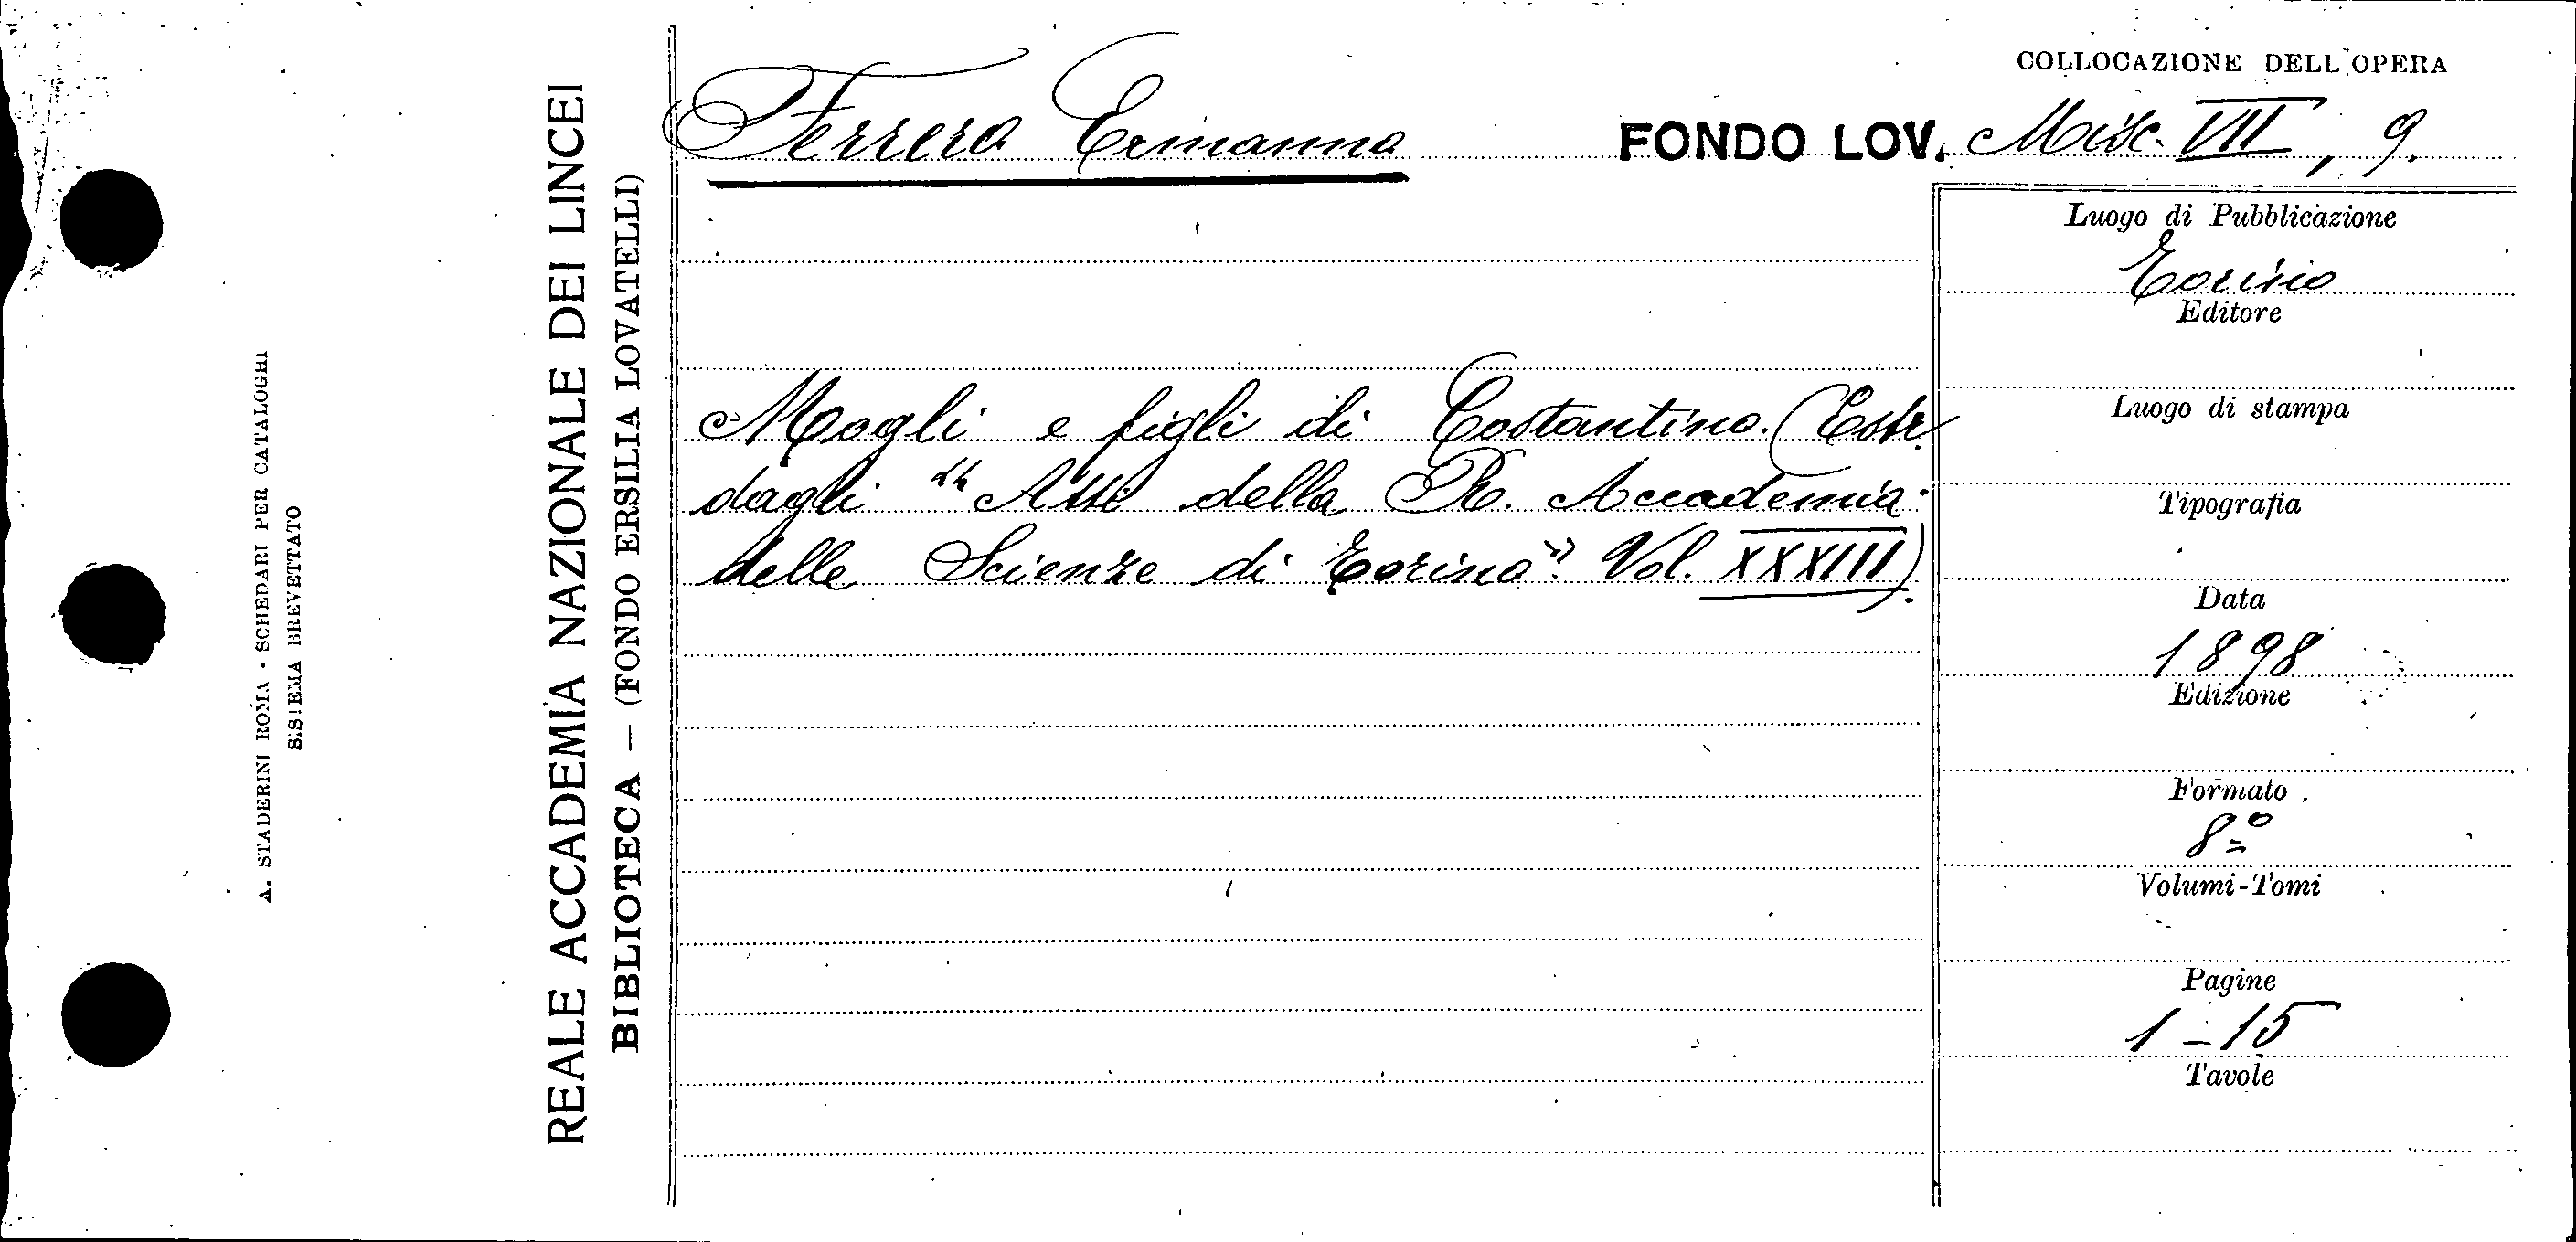 COLLOCAZIONE DELL'OPERA
Ferrero Ermanno
FONDO LOV. Misc. VII, 9.
Luogo di Pubblicazione
Torino
Editore
Mogli e figli di Costantino. (Estr.
dagli "Atti della R. Accademia
delle Scienze di Torino". Vol. XXXIII).
Luogo di stampa
Tipografia
Data
1898
Edizione
Formato
8º
Volumi-Tomi
Pagine
1-15
Tavole
REALE ACCADEMIA NAZIONALE DEI LINCEI
BIBLIOTECA — (FONDO ERSILIA LOVATELLI)
A. STADERINI ROMA - SCHEDARI PER CATALOGHI
SISTEMA BREVETTATO